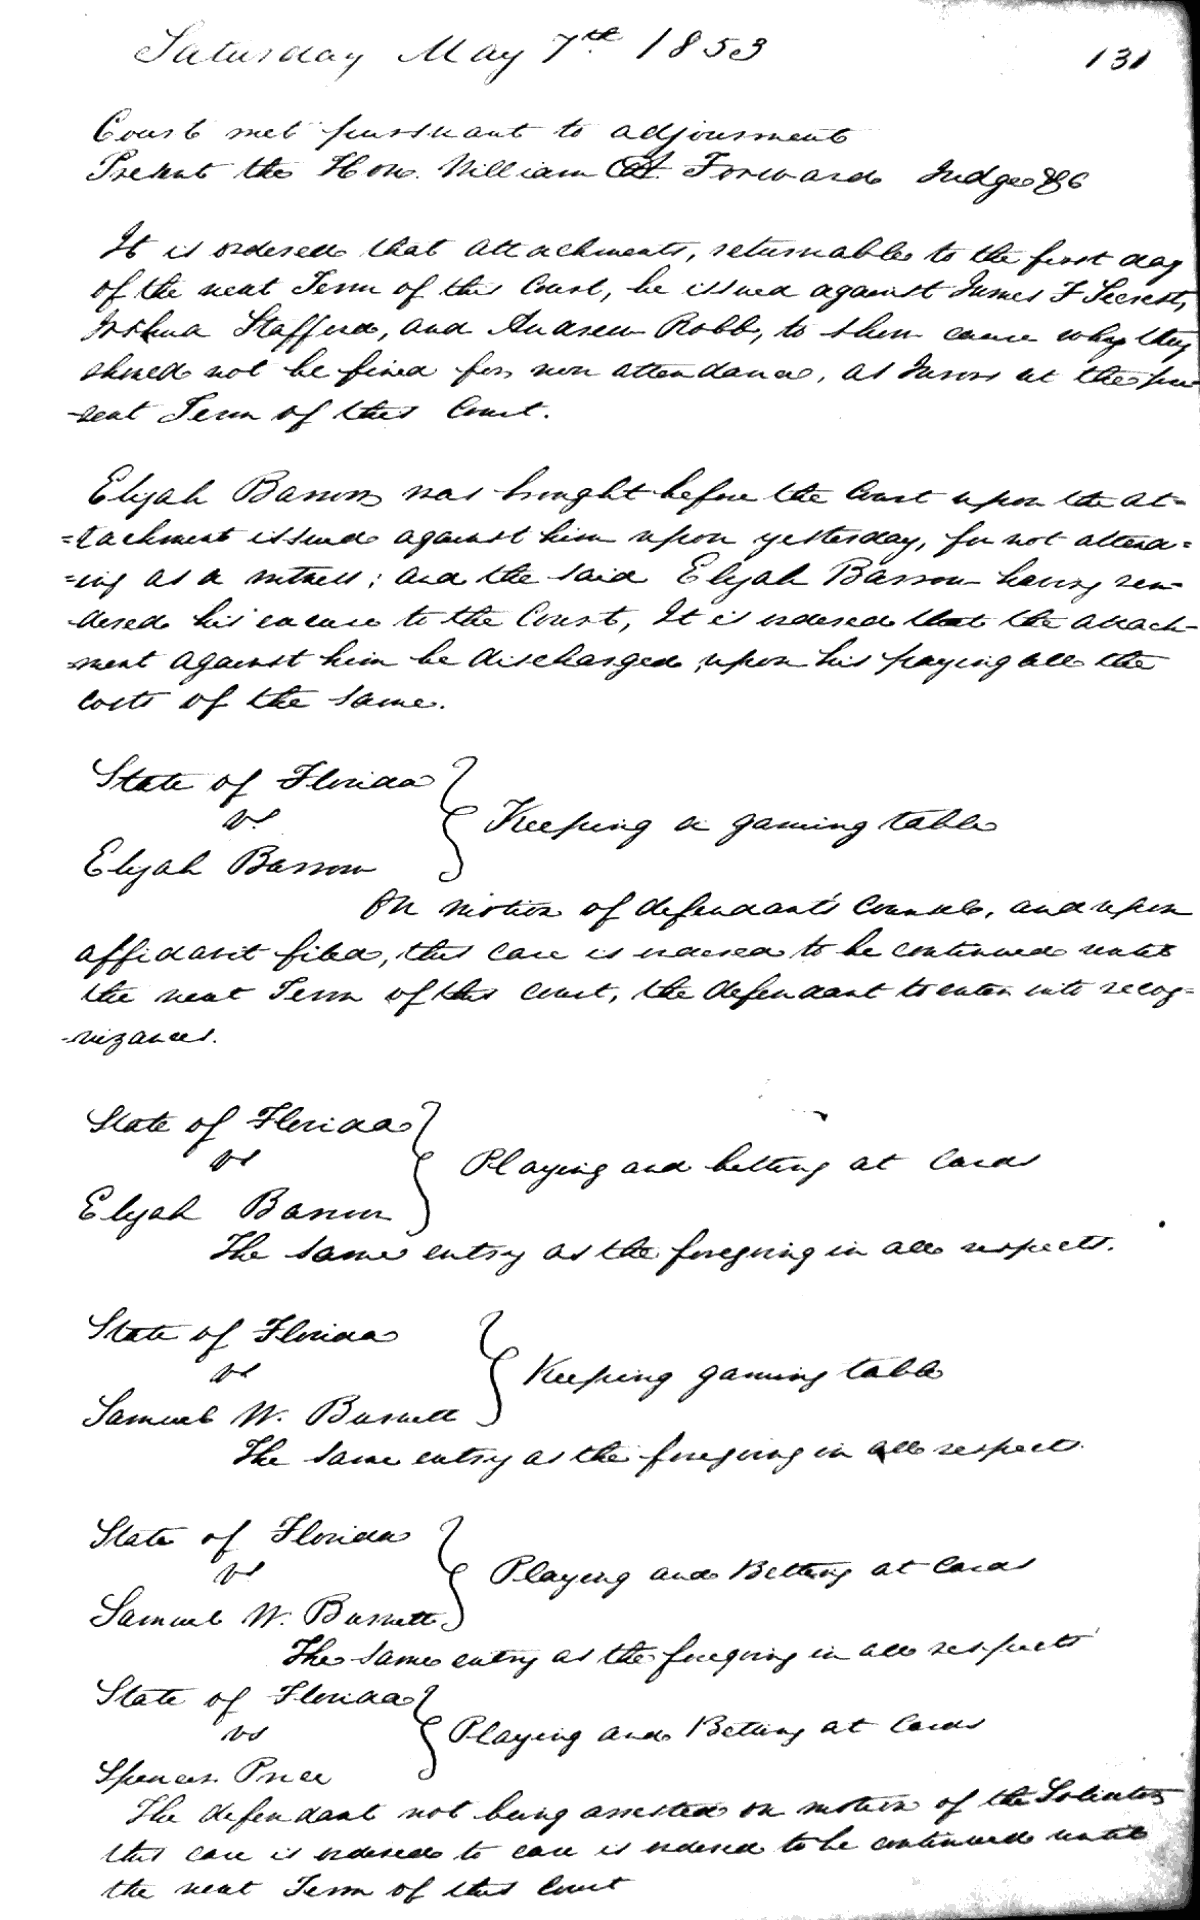 Saturday May 7th 1853
131
Court met pursuant to adjournment
Present the Hon. William A. Forward Judge &c
It is ordered that attachments, returnable to the first day
of the next Term of this Court, be issued against James F Secrest,
Joshua Stafford, and Andrew Robb, to shew cause why they
should not be fined for non attendance, as Jurors at the pre-
-sent Term of this Court.
Elijah Barrow was brought before the Court upon the at-
=tachment issued against him upon yesterday, for not attend=
=ing as a witness; and the said Elijah Barrow having ren-
-dered his excuse to the Court, It is ordered that the attach-
-ment against him be discharged, upon his paying all the
costs of the same.
State of Florida
vs.
Keeping a gaming table
Elijah Barrow
On motion of defendant's Counsel, and upon
affidavit filed, this case is ordered to be continued until
the next Term of this Court, the defendant to enter into recog=
-nizances.
State of Florida
vs
Playing and betting at Cards
Elijah Barrow
The same entry as the foregoing in all respects.
State of Florida
vs
Keeping gaming table
Samuel W. Burnett
The same entry as the foregoing in all respects.
State of Florida
vs
Playing and Betting at Cards
Samuel W. Burnett
The same entry as the foregoing in all respects
State of Florida
vs
Playing and Betting at Cards
Spencer Price
The defendant not being arrested on motion of the Solicitor
this case is ordered to case is ordered to be continued until
the next Term of this Court